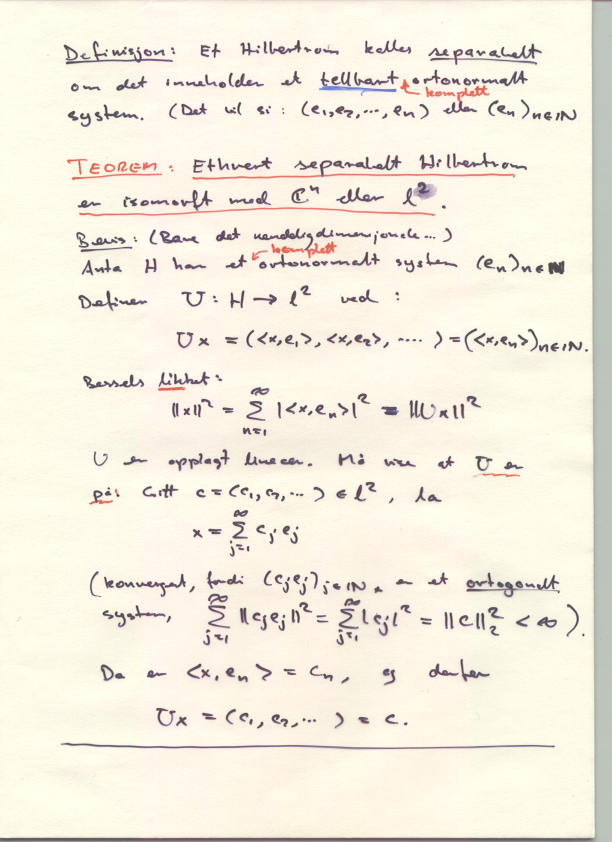 Definisjon: Et Hilbertrom kalles separabelt
om det inneholder et tellbart komplett ortonormalt
system. (Det vil si: (e₁,e₂,...,eₙ) eller (eₙ)ₙ∈ℕ
TEOREM: Ethvert separabelt Hilbertrom
er isomorft med ℂⁿ eller l².
Bevis: (Bare det uendeligdimensjonale...)
Anta H har et komplett ortonormalt system (eₙ)ₙ∈ℕ
Definer U: H → l² ved:
Ux = (<x,e₁>, <x,e₂>, ....) = (<x,eₙ>)ₙ∈ℕ.
Bessels likhet:
||x||² = ∑_{n=1}^∞ |<x,eₙ>|² = ||Ux||²
U er opplagt lineær. Må vise at U er
på: Gitt c = (c₁,c₂,...) ∈ l², la
x = ∑_{j=1}^∞ cⱼeⱼ
(konvergent, fordi (cⱼeⱼ)_{j∈ℕ} er et ortogonalt
system, ∑_{j=1}^∞ ||cⱼeⱼ||² = ∑_{j=1}^∞ |cⱼ|² = ||c||₂² < ∞).
Da er <x,eₙ> = cₙ, og derfor
Ux = (c₁,c₂,...) = c.